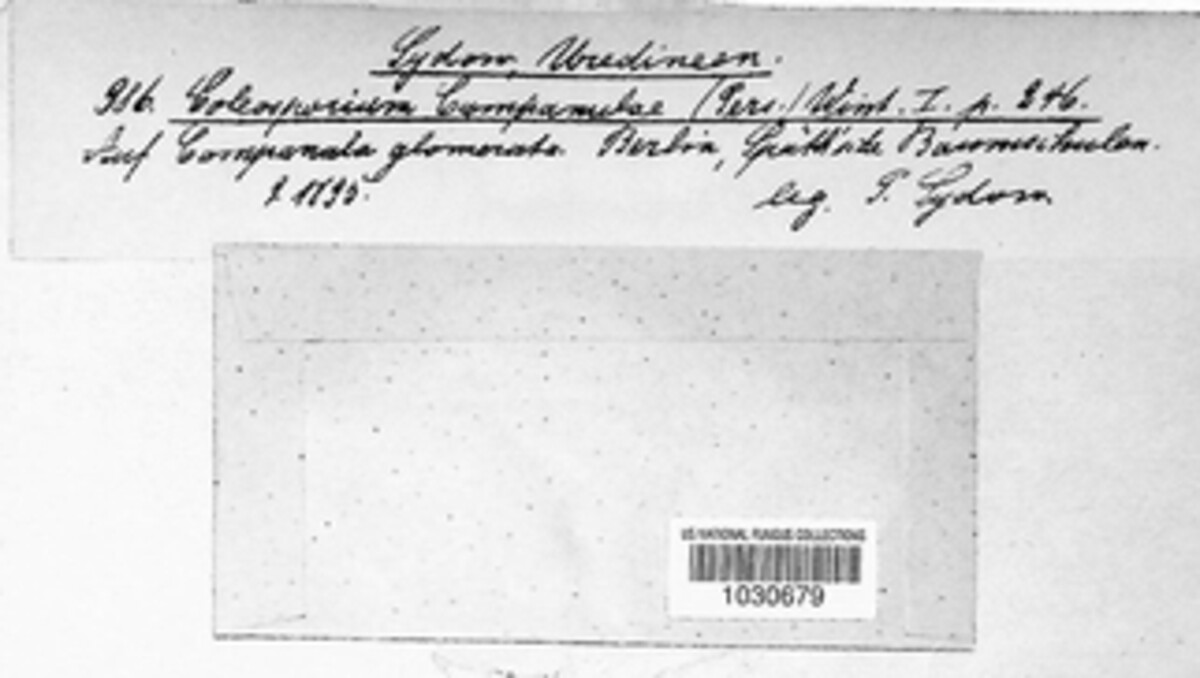 Sydow, Uredineen.
916. Coleosporium Campanulae (Pers.) Wint. I. p. 246.
Auf Campanula glomerata Berlin, Späth'sche Baumschulen.
1895. leg. P. Sydow.
US NATIONAL FUNGUS COLLECTIONS
1030679